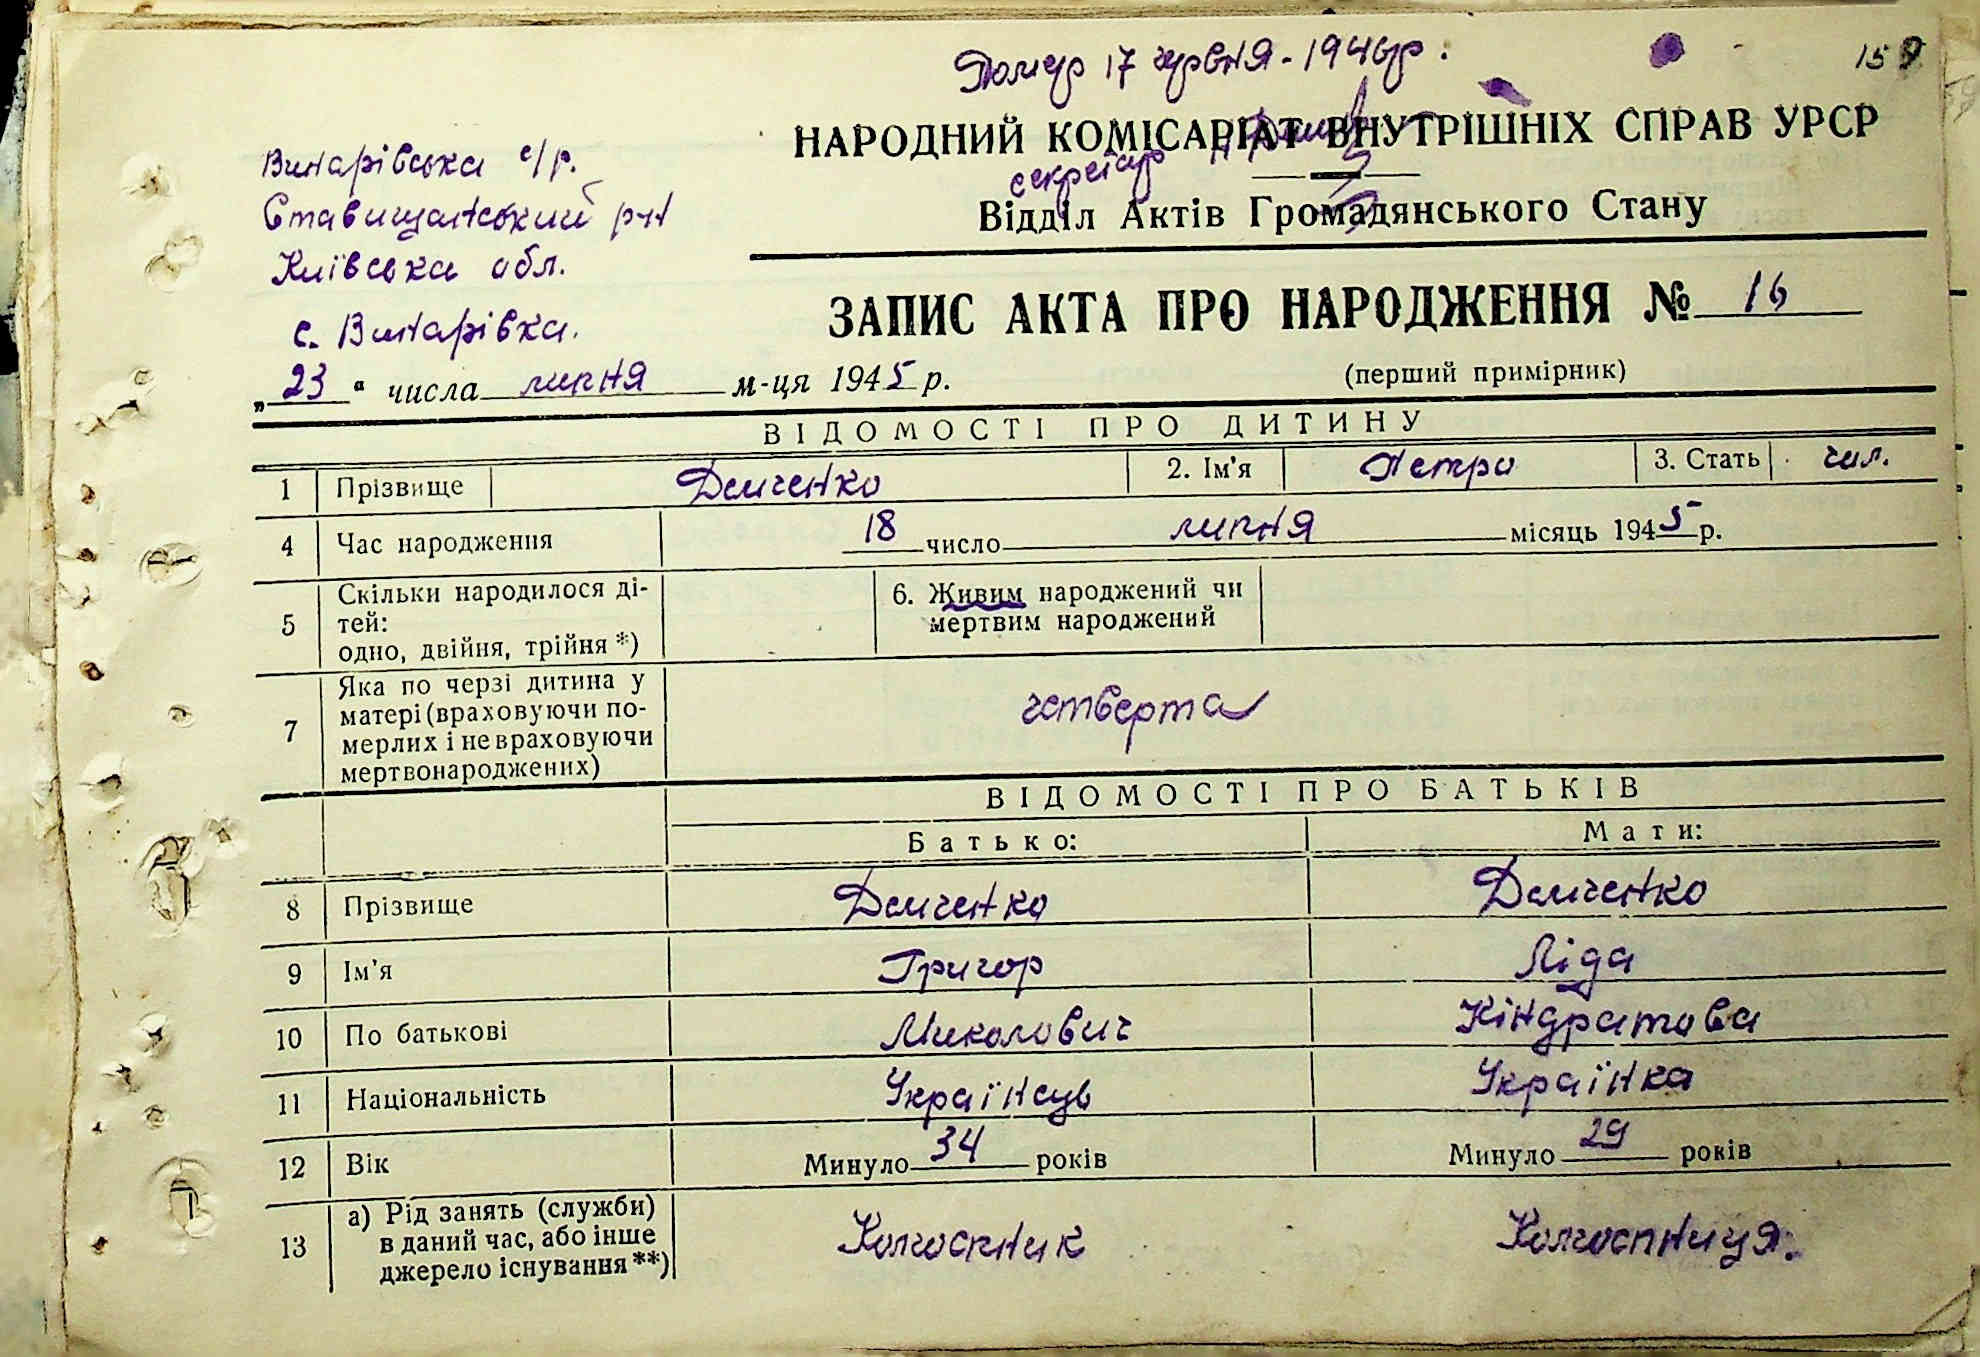 Помер 17 червня - 1946р.
159
НАРОДНИЙ КОМІСАРІАТ ВНУТРІШНІХ СПРАВ УРСР
секретар
Відділ Актів Громадянського Стану
Винарівська с/р.
Ставищанський р-н
Київська обл.
с. Винарівка.
ЗАПИС АКТА ПРО НАРОДЖЕННЯ № 16
„23" числа липня м-ця 1945 р.
(перший примірник)
ВІДОМОСТІ ПРО ДИТИНУ
1 Прізвище Демченко 2. Ім'я Петро 3. Стать чол.
4 Час народження 18 число липня місяць 1945 р.
5 Скільки народилося ді-
тей:
одно, двійня, трійня *)
6. Живим народжений чи
мертвим народжений
7 Яка по черзі дитина у
матері (враховуючи по-
мерлих і не враховуючи
мертвонароджених)
четверта
ВІДОМОСТІ ПРО БАТЬКІВ
Батько: Мати:
8 Прізвище Демченко Демченко
9 Ім'я Григор Ліда
10 По батькові Миколович Кіндратова
11 Національність Українець Українка
12 Вік Минуло 34 років Минуло 29 років
13 а) Рід занять (служби)
в даний час, або інше
джерело існування **)
Колгоспник Колгоспниця.